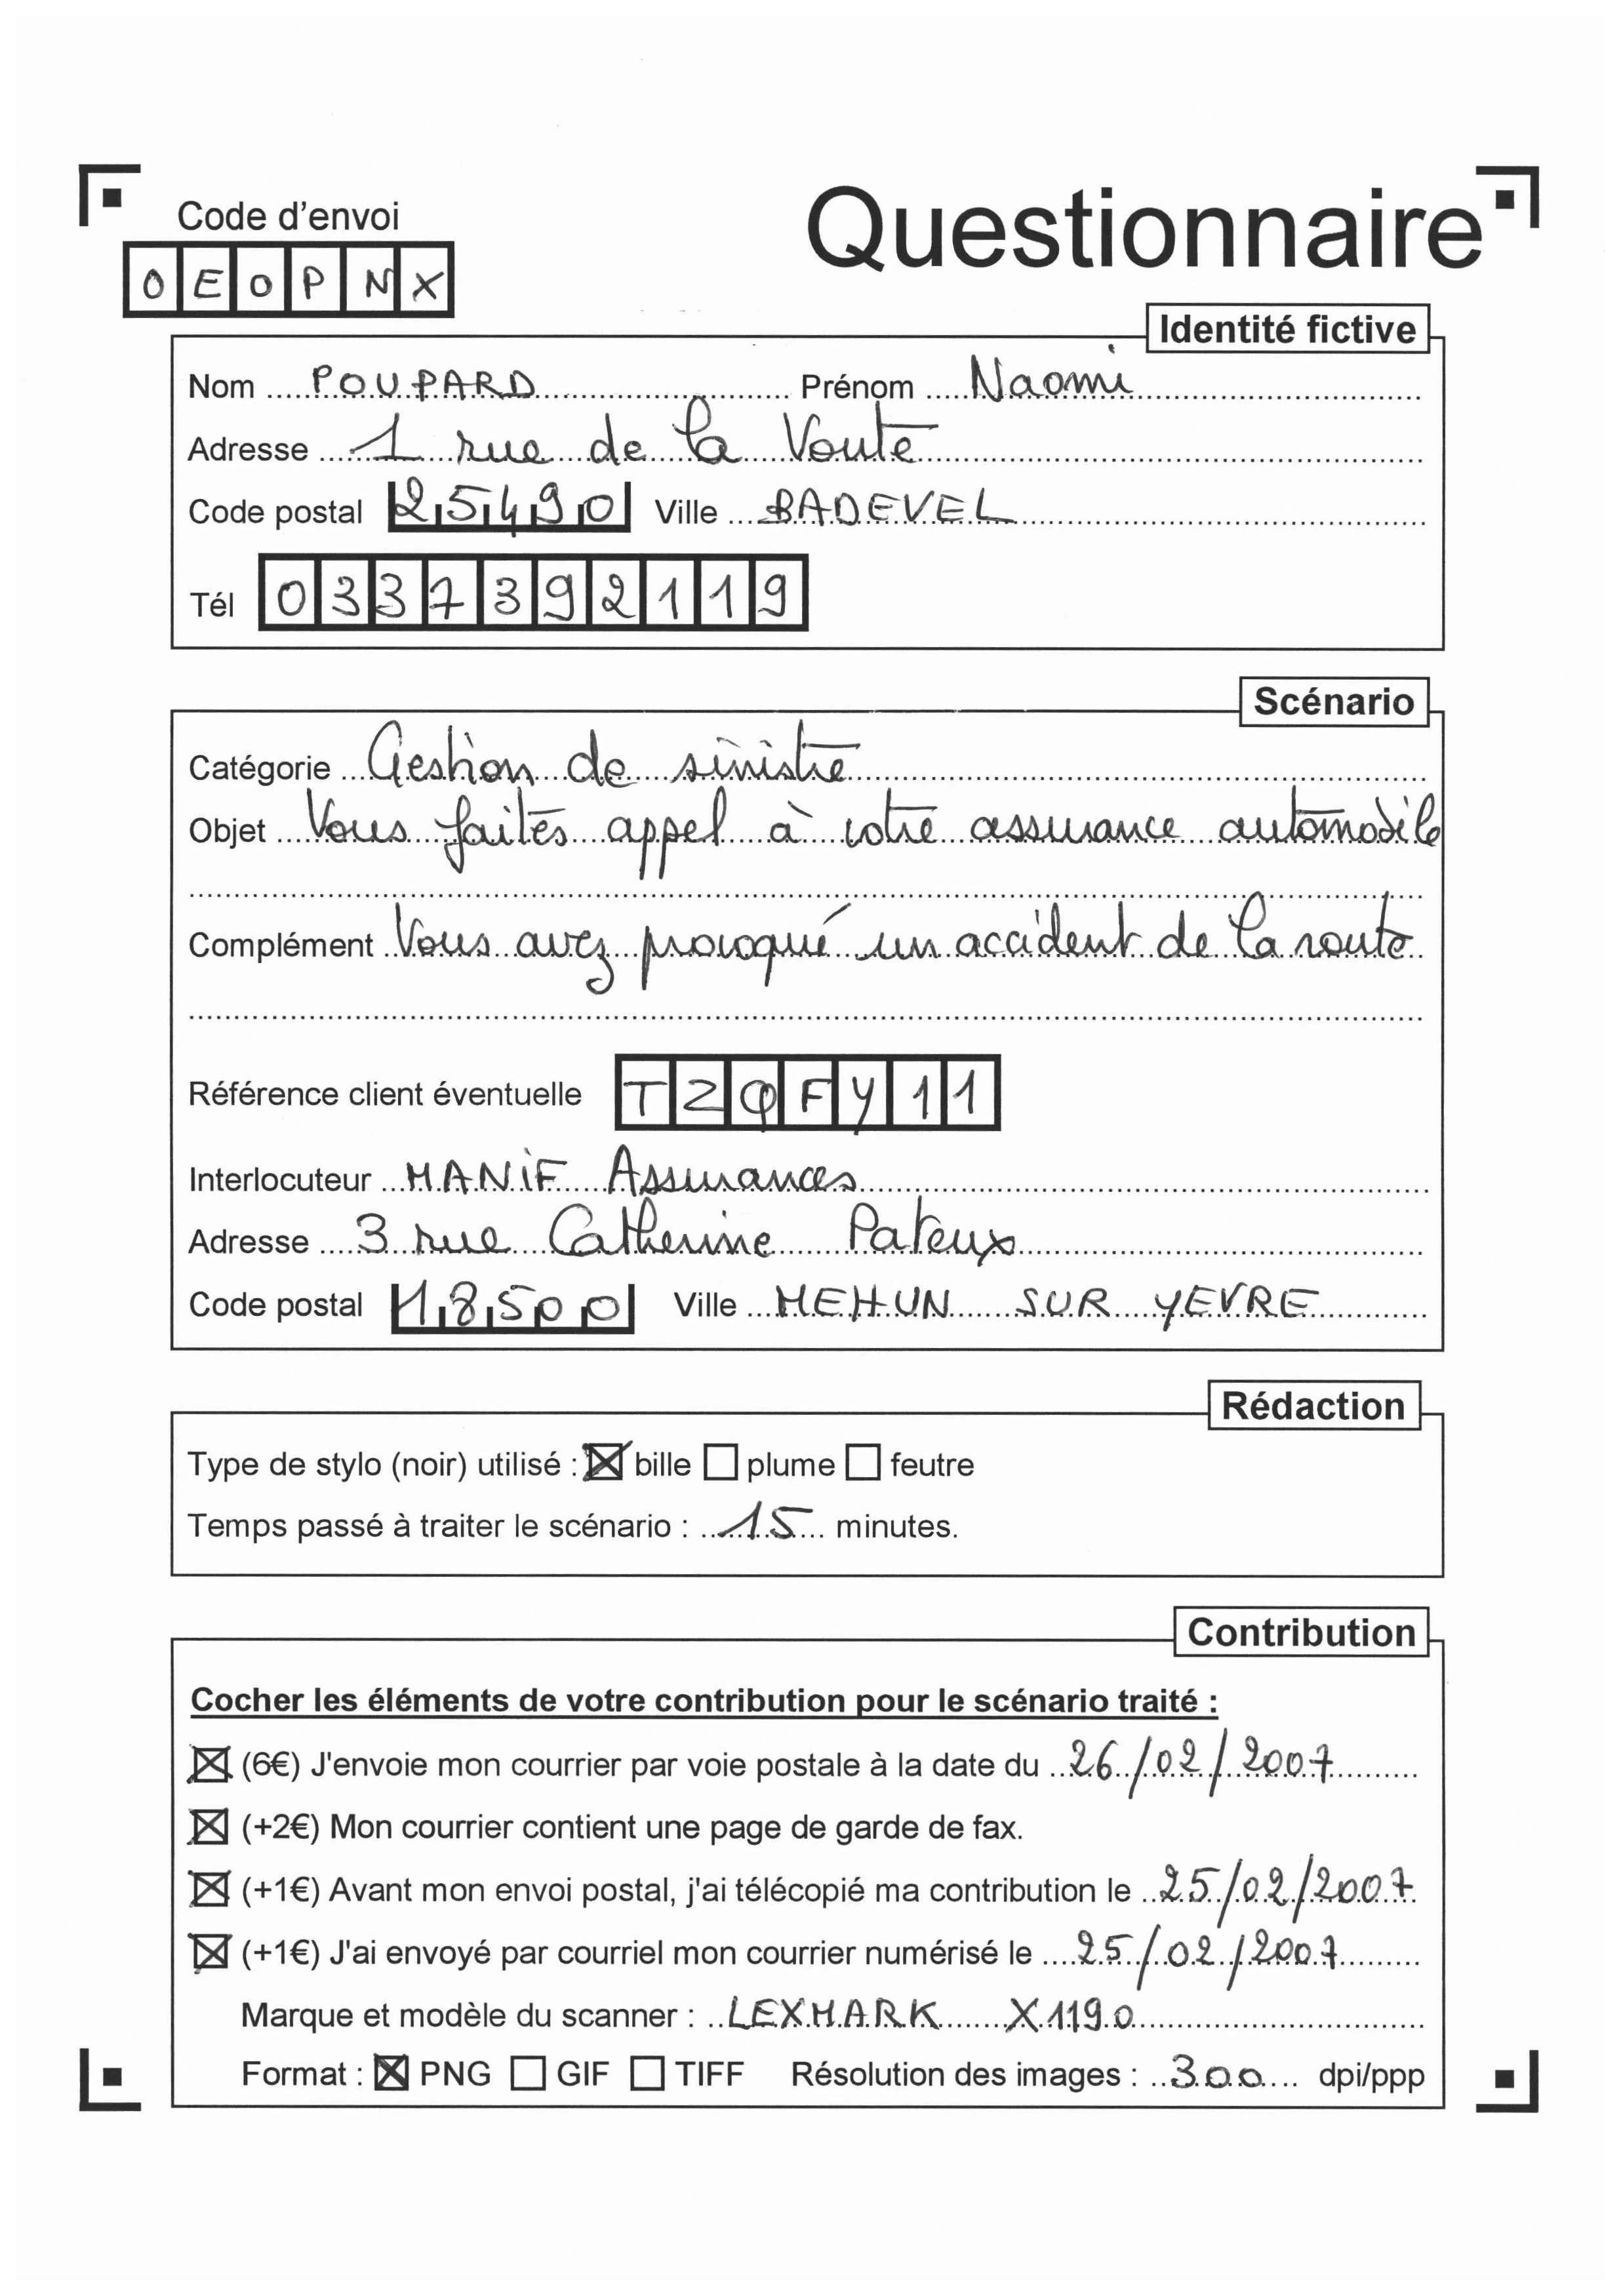 Code d'envoi
Questionnaire
OEOPNX
Identité fictive
Nom POUPARD Prénom Naomi
Adresse 1 rue de la Voute
Code postal 25490 Ville BADEVEL
Tél 0337392119
Scénario
Catégorie Gestion de sinistre
Objet Vous faites appel à votre assurance automobile
Complément Vous avez provoqué un accident de la route
Référence client éventuelle TZQFY11
Interlocuteur MANIF Assurances
Adresse 3 rue Catherine Pateux
Code postal 18500 Ville MEHUN SUR YEVRE
Rédaction
Type de stylo (noir) utilisé : ☒ bille ☐ plume ☐ feutre
Temps passé à traiter le scénario : 15 minutes.
Contribution
Cocher les éléments de votre contribution pour le scénario traité :
☒ (6€) J'envoie mon courrier par voie postale à la date du 26/02/2007
☒ (+2€) Mon courrier contient une page de garde de fax.
☒ (+1€) Avant mon envoi postal, j'ai télécopié ma contribution le 25/02/2007
☒ (+1€) J'ai envoyé par courriel mon courrier numérisé le 25/02/2007
Marque et modèle du scanner : LEXMARK X1190
Format : ☒ PNG ☐ GIF ☐ TIFF Résolution des images : 300 dpi/ppp